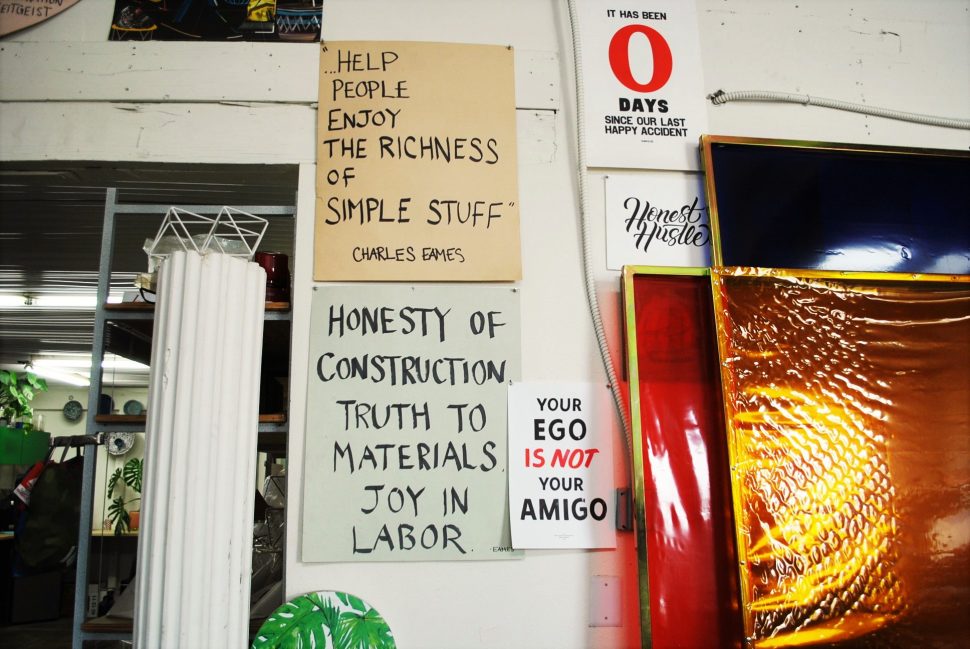 EITGEIST
"...HELP
PEOPLE
ENJOY
THE RICHNESS
OF
SIMPLE STUFF"
CHARLES EAMES
HONESTY OF
CONSTRUCTION
TRUTH TO
MATERIALS.
JOY IN
LABOR.
-EAMES
IT HAS BEEN
0
DAYS
SINCE OUR LAST
HAPPY ACCIDENT
Honest
Hustle
YOUR
EGO
IS NOT
YOUR
AMIGO